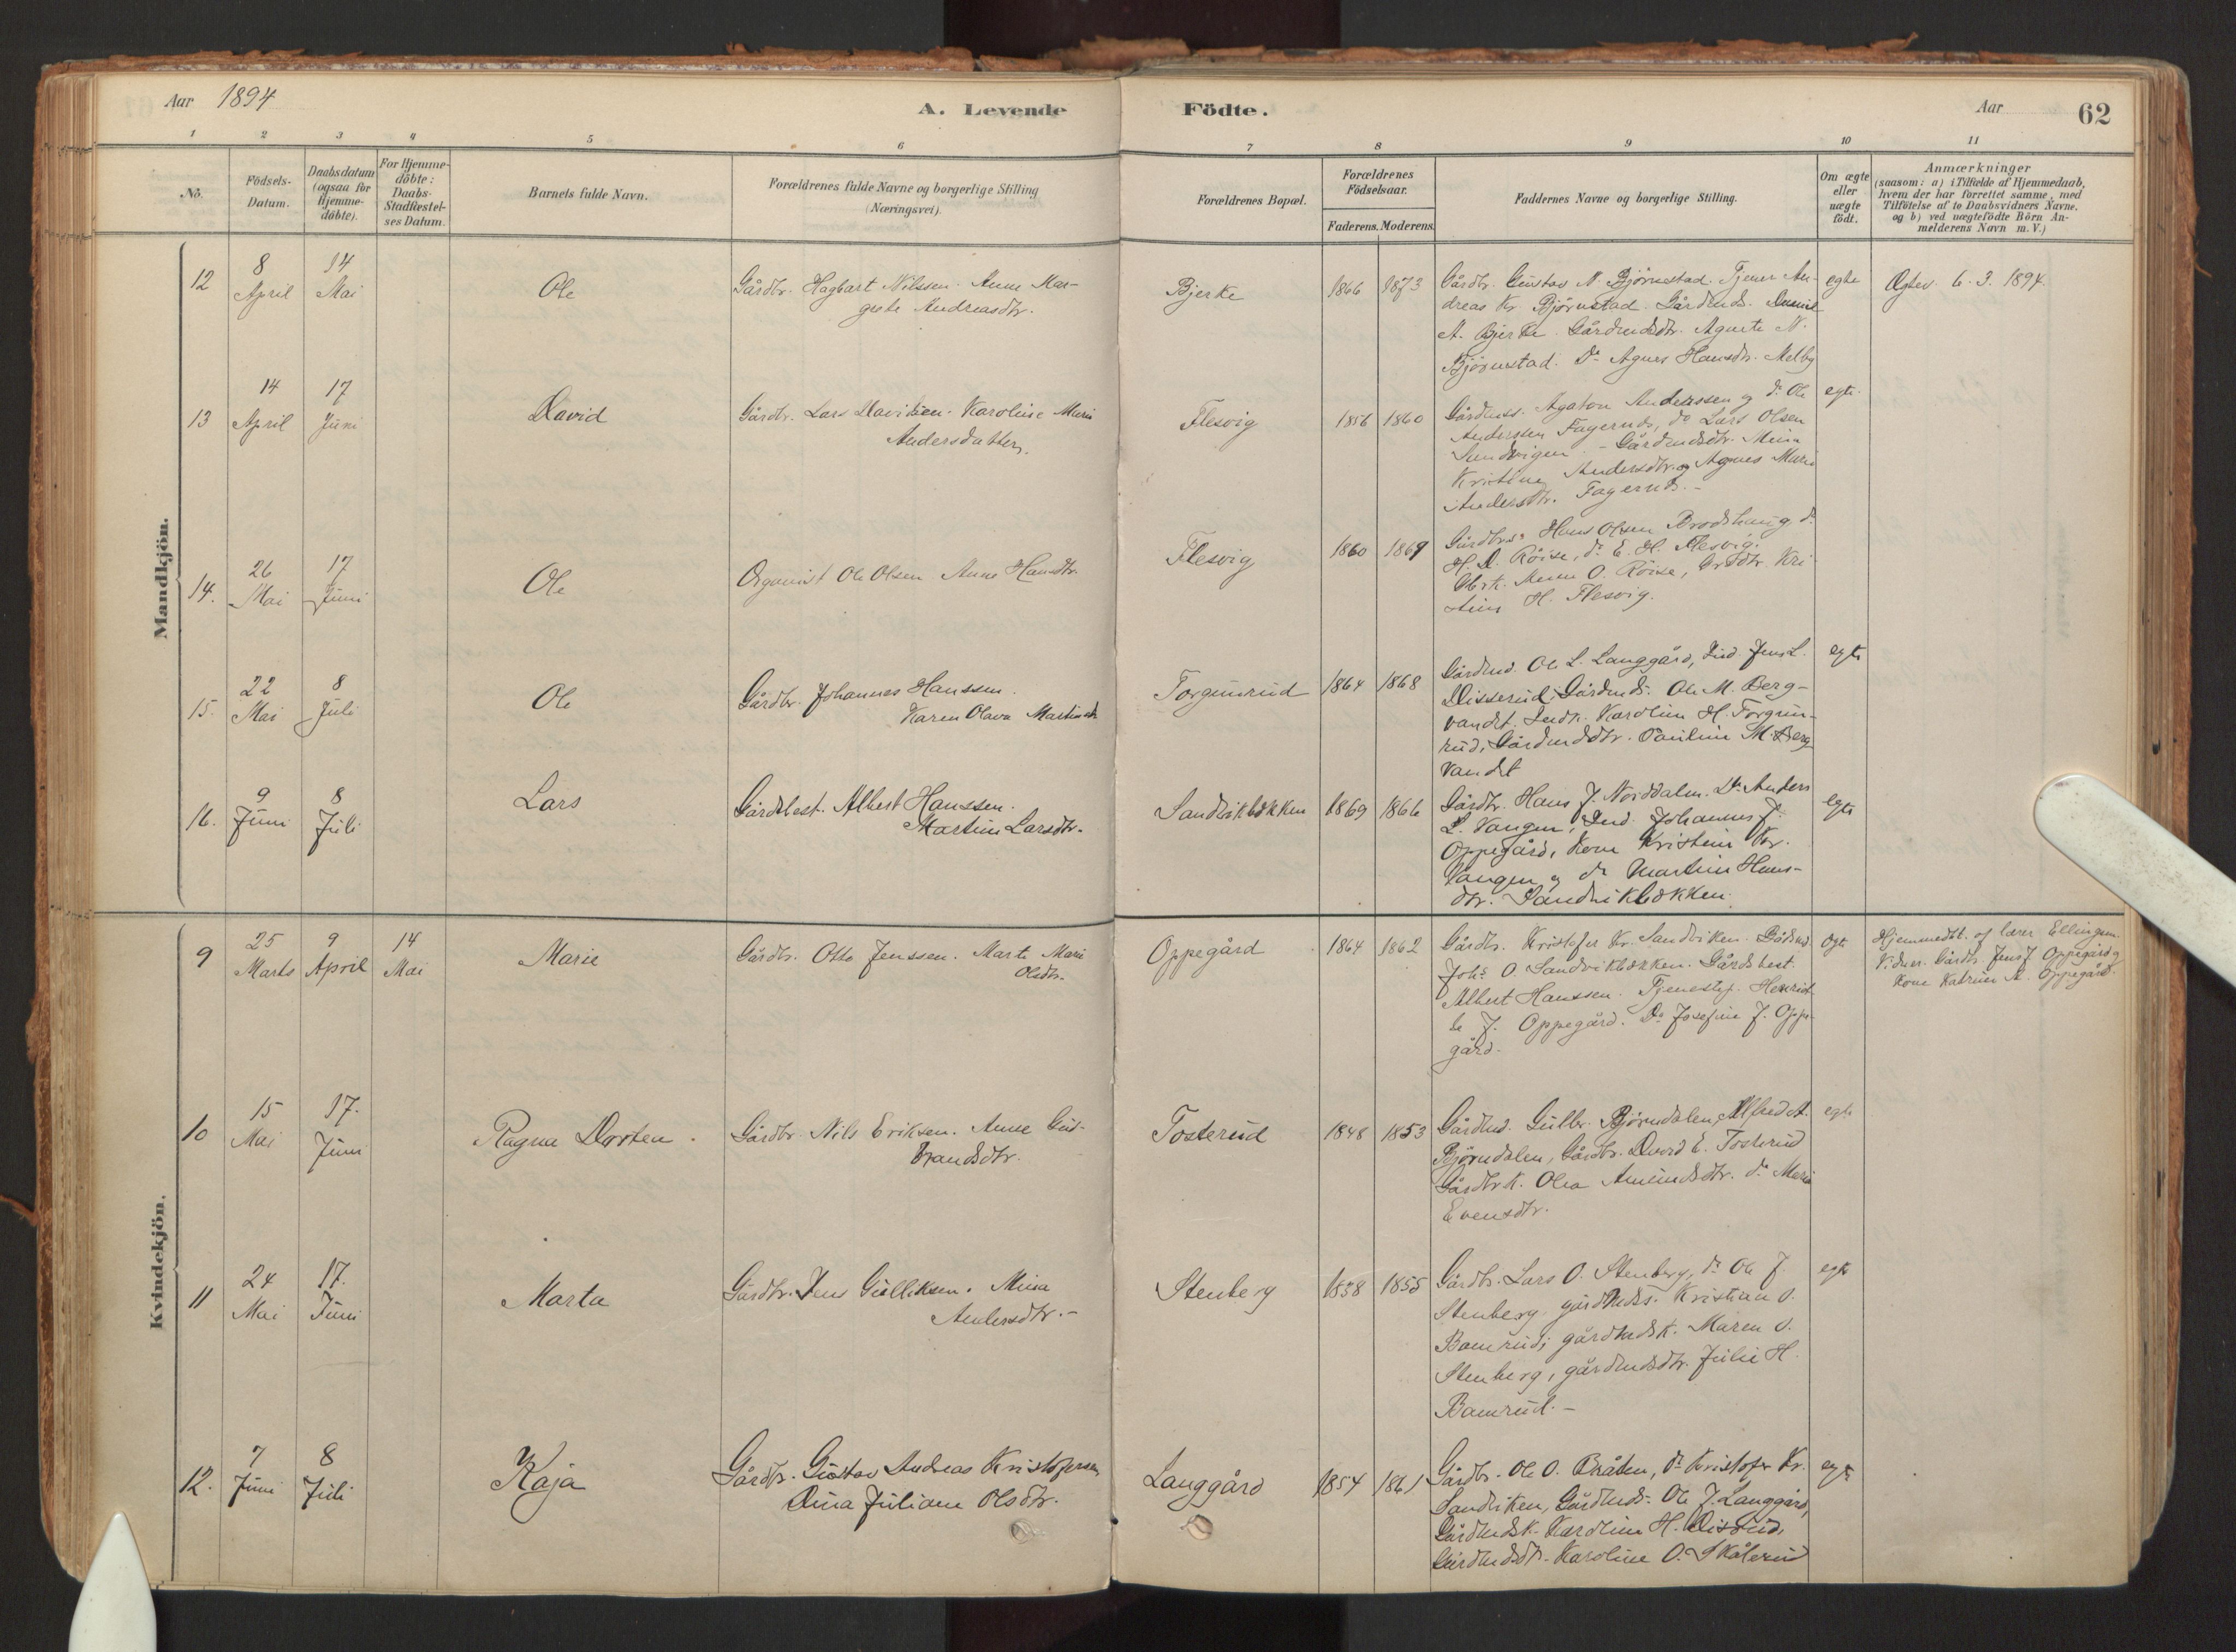 Aar 1894
A. Levende Födte.
Aar
62
1 2 3 4 5 6 7 8 9 10 11
No.
Födsels-Datum.
Daabsdatum (ogsaa for Hjemmedöbte).
For Hjemmedöbte: Daabs-Stadfæstelses Datum.
Barnets fulde Navn.
Forældrenes fulde Navne og borgerlige Stilling (Næringsvei).
Forældrenes Bopæl.
Forældrenes Födselsaar.
Faderens. Moderens.
Faddernes Navne og borgerlige Stilling.
Om ægte eller uægte födt.
Anmærkninger
(saasom: a) i Tilfælde af Hjemmedaab,
hvem der har forrettet samme, med
Tilföielse af to Daabsvidners Navne.
og b) ved uægtefödte Börn An-
melderens Navn m. V.)
Mandkjön.
12
8 April
14 Mai
Ole
Gårdbr. Hagbart Nilssen. Anne Mar-
grete Andreasdtr.
Bjerke
1866 1873
Gårdbr. Gustav N. Bjørnstad. Tjener An-
dreas Kr. Bjørnstad. Gårdmds.
A. Bjerke. Gårdmdsdtr. Agnete N.
Bjørnstad. Do Agnes Hansdtr. Melby
egte
Ægtev. 6.3.1894.
13
14 April
17 Juni
David
Gårdbr. Lars Davidsen. Karoline Marie
Andersdatter.
Flesvig
1856 1860
Gårdmss. Agaton Anderssen og do Ole
Anderssen Fagernds, do Lars Olsen
Sandvigen. - Gårdmdsdtr. Mina
Kristine Andersdtr. og Agnes Marie
Andersdtr. Fagernds. -
egte
14.
26 Mai
17 Juni
Ole
Organist Ole Olsen Anne Hansdtr.
Flesvig
1860 1869
Gårdbrs. Hans Olsen Brodshaug do
H. D. Röise, do E. H. Flesvig.
Gbrk. Anne O. Röise, Kri-
stine H. Flesvig.
15.
22 Mai
8 Juli
Ole
Gårdbr. Johannes Hanssen.
Karen Olava Martinsdtr
Torgunrud
1864 1868
Gårdmd. Ole L. Langgård, Ind. Jens L.
Disserud, Gårdmds. Ole M. Berg-
vandet. Indk. Karoline H. Torgun-
rud, Gårdmdsdtr. Pauline M. Berg
vandet
egte
16.
9 Juni
8 Juli
Lars
Gårdbest. Albert Hanssen.
Martine Larsdtr.
Sandvikbækken
1869 1866
Gårdbr. Hans J. Norddalm. Do Anders
L. Vangen, Ind. Johannes J.
Oppegård, Kone Kristine Kr.
Vangen og do Martine Hans-
dtr. Sandvikbækken.
egte
Kvindekjön.
9
25 Marts
9 April
14 Mai
Marie
Gårdbr. Otto Jenssen. Marte Marie
Olsdtr.
Oppegård
1864 1862
Gårdbr. Kristofer Kr. Sandviken. Gårdmd.
Johs O. Sandvikbækken. Gårdsbest.
Albert Hanssen. Tjenestep. Henriet-
te J. Oppegård. Do Josefine J. Oppe-
gård.
Hjemmedbt. af lærer Ellingsen.
Vidner. Gårdbr. Jens J. Oppegård og
Kone Katrine A. Oppegård.
10
15 Mai
17. Juni
Ragna Dorten.
Gårdbr. Nils Eriksen. Anne Gul-
brandsdtr.
Tosterud
1848 1853
Gårdmd. Gulbr. Bjørndalen, Alfred A.
Bjørndalen, Gårdbr. E. Tosterud
Gårdbrk. Olea Amundsdtr. do Marie
Evensdtr.
egte
11
24 Mai
17. Juni
Marta
Gårdbr. Jens Gulliksen. Mina
Andersdtr. -
Stenberg
1838 1855
Gårdbr. Lars O. Stenberg, do Ole J.
Stenberg gårdmds. Kristian O.
Bamrud, gårdmdsk. Maren O.
Stenberg, gårdmdsdtr. Julie H.
Bamrud. -
egte
12.
7 Juni
8 Juli
Kaja
Gårdbr. Gustav Andreas Kristofersen
Dina Juliane Olsdtr.
Langgård
1854 1861
Gårdbr. Ole O. Bråten, do Kristofer Kr.
Sandviken, Gårdmds. Ole J. Langgård,
Gårdmdsk. Karoline H. Disrud,
Gårdmdsdtr. Karoline O. Skålerud
egte